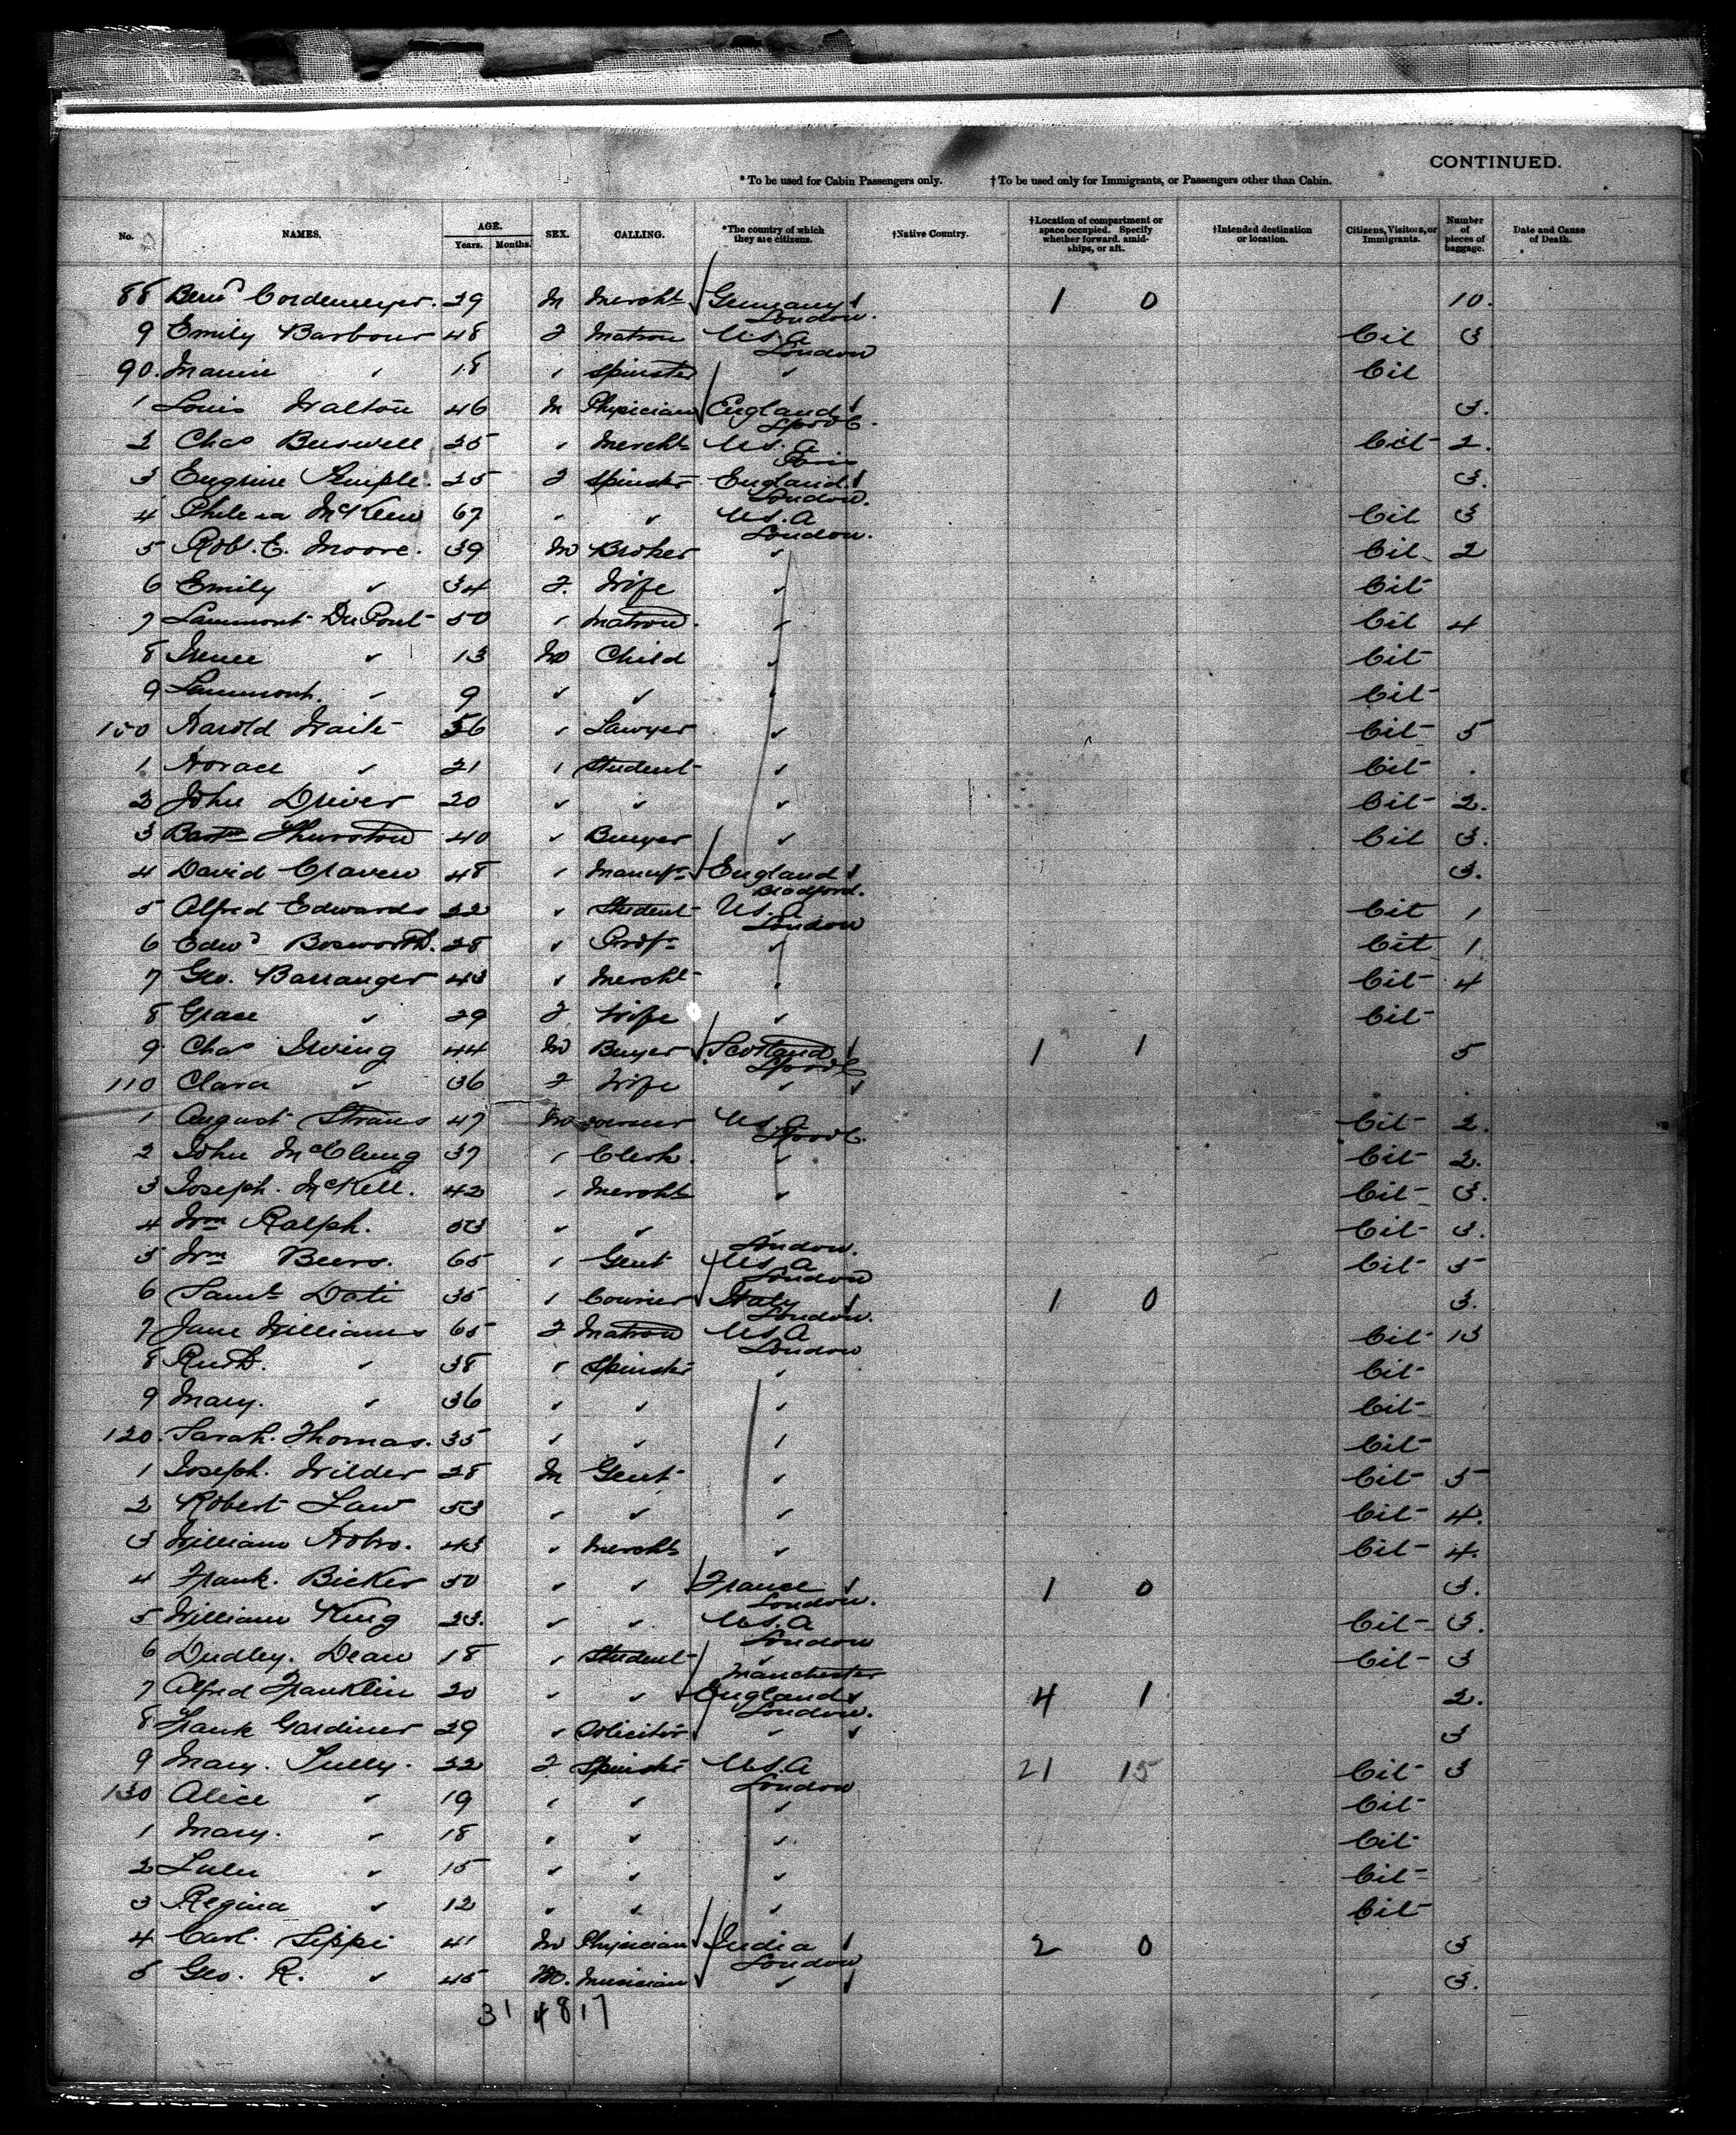 CONTINUED.
* To be used for Cabin Passengers only. † To be used only for Immigrants, or Passengers other than Cabin.
No. NAMES. AGE. Years. Months. SEX. CALLING. *The country of which they are citizens. †Native Country. †Location of compartment or space occupied. Specify whether forward, amidships, or aft. †Intended destination or location. Citizens, Visitors, or Immigrants. Number of pieces of baggage. Date and Cause of Death.
88 Cordemeyer. 29 M Mercht Germany 1 0 10.
London.
9 Emily Barbour 48 F Matron U.S.A Cit 3
London
90. Mamie " 18 " Spinster " Cit
1 Louis Walton 46 M Physician England 3.
Lpool.
2 Chas Buswell 25 " Mercht U.S.A Cit 2.
Paris
3 Temple. 25 F Spinster England. 3.
London.
4 McKeen 67 " " U.S.A Cit 3
London.
5 Rob. E. Moore. 39 M Broker " Cit 2
6 Emily " 34 F. Wife " Cit
7 Lammont DuPont 50 " Matron. " Cit 4
8 Irenee " 13 M Child " Cit
9 Lammont. " 9 " " " Cit
100 Harold Waite 56 " Lawyer " Cit 5
1 Horace " 21 " Student " Cit
2 John Driver 20 " " " Cit 2.
3 Thurston 40 " Buyer " Cit 3.
4 David Craven 48 " Manufr England 3.
Bradford.
5 Alfred Edwards 22 " Student U.S.A Cit 1
London
6 Edwd Bosworth. 28 " Profr " Cit 1
7 Geo. Barranger 43 " Mercht " Cit 4
8 Grace " 29 F Wife " Cit
9 Chas Irving 44 M Buyer Scotland. 1 1 5
Lpool
110 Clara " 36 F Wife "
1 August Straus 47 M U.S.A Cit 2.
Lpool.
2 John McClung 37 " Clerk. " Cit 2.
3 Joseph. McKell. 42 " Mercht " Cit 3.
4 Wm Ralph. 53 " " " Cit 3.
London.
5 Wm Beers. 65 " Gent U.S.A Cit 5
London
6 Saml Dati 35 " Courier Italy 1 0 3.
London.
7 Jane Williams 65 F Matron U.S.A Cit 13
London
8 Ruth. " 38 " Spinster " Cit
9 Mary. " 36 " " " Cit
120. Sarah. Thomas. 35 " " " Cit
1 Joseph. Wilder 28 M Gent " Cit 5
2 Robert Law 53 " " " Cit 4.
3 William 43 " Mercht " Cit 4.
4 Frank. Bicker 50 " " France 1 0 3.
London.
5 William King 23. " " U.S.A Cit 3.
London
6 Dudley. Dean 18 " Student " Cit 3
Manchester
7 Alfred Franklin 20 " " England 4 1 2.
London.
8 Frank Gardiner 29 " Solicitor " 3
9 Mary. Tully. 22 F Spinster U.S.A 21 15 Cit 3
London
130 Alice " 19 " " " Cit
1 Mary. " 18 " " " Cit
2 Lulu " 15 " " " Cit
3 Regina " 12 " " " Cit
4 Carl. Lippi 41 M Physician India 2 0 3
London
5 Geo. R. " 45 M. Musician " 3.
31 4817